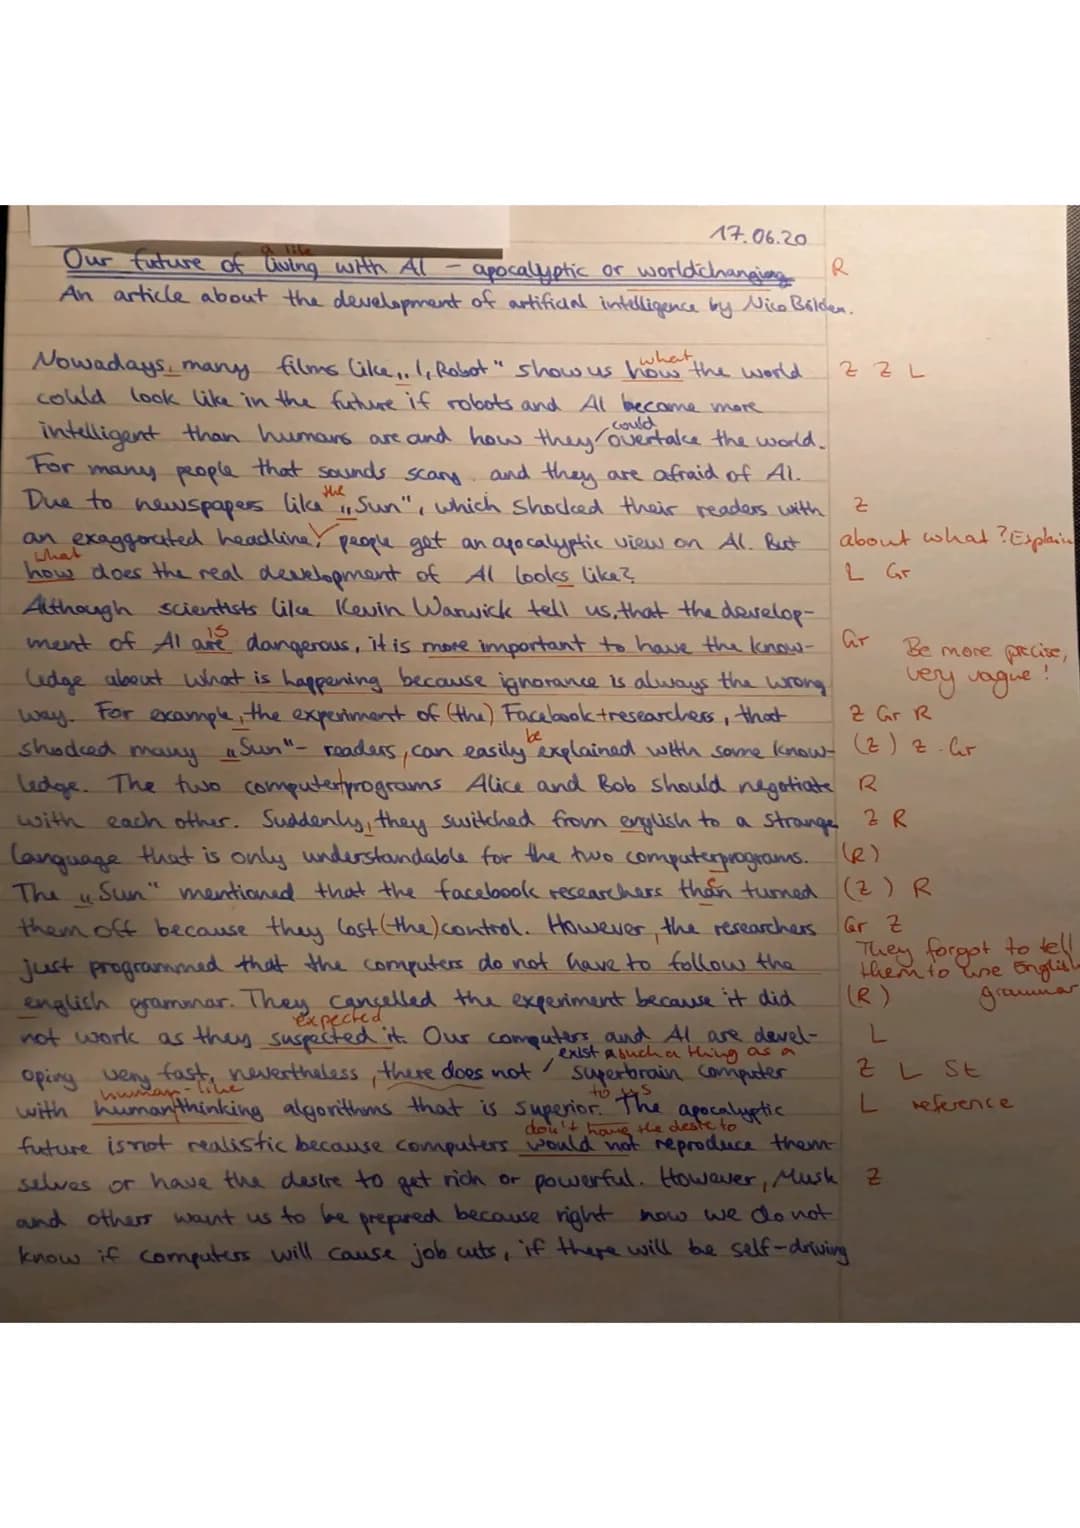 17.06.20
a life
Our future of living with AI - apocalyptic or worldchanging R
An article about the development of artificial intelligence by Nico Bölden.
what
Nowadays, many films like „I, Robot" show us how the world Z Z L
could look like in the future if robots and AI become more
could
intelligent than humans are and how they overtake the world.
For many people that sounds scary and they are afraid of AI.
the
Due to newspapers like „Sun", which shocked their readers with Z
an exaggorated headline, people get an apocalyptic view on AI. But about what? Explain
what
how does the real development of AI looks like? L Gr
Although scientists like Kevin Warwick tell us, that the develop-
is
ment of AI are dangerous, it is more important to have the know- Gr Be more precise,
ledge about what is happening because ignorance is always the wrong very vague!
way. For example, the experiment of (the) Facebook+researchers, that Z Gr R
be
shocked many „Sun"- readers, can easily explained with some know- (Z) Z Gr
ledge. The two computerprograms Alice and Bob should negotiate R
with each other. Suddenly, they switched from english to a strange Z R
language that is only understandable for the two computerprograms. (R)
e
The „Sun" mentioned that the facebook researchers than turned (Z) R
them off because they lost (the) control. However, the researchers Gr Z
just programmed that the computers do not have to follow the They forgot to tell them to use English grammar
english grammar. They cancelled the experiment because it did (R)
expected
not work as they suspected it. Our computers and AI are devel- L
exist such a thing as a
oping very fast, nevertheless, there does not superbrain computer Z L St
human-like to us
with humanthinking algorithms that is superior. The apocalyptic L reference
don't have the desire to
future is not realistic because computers would not reproduce them-
selves or have the desire to get rich or powerful. However, Musk Z
and others want us to be prepared because right now we do not
know if computers will cause job cuts, if there will be self-driving